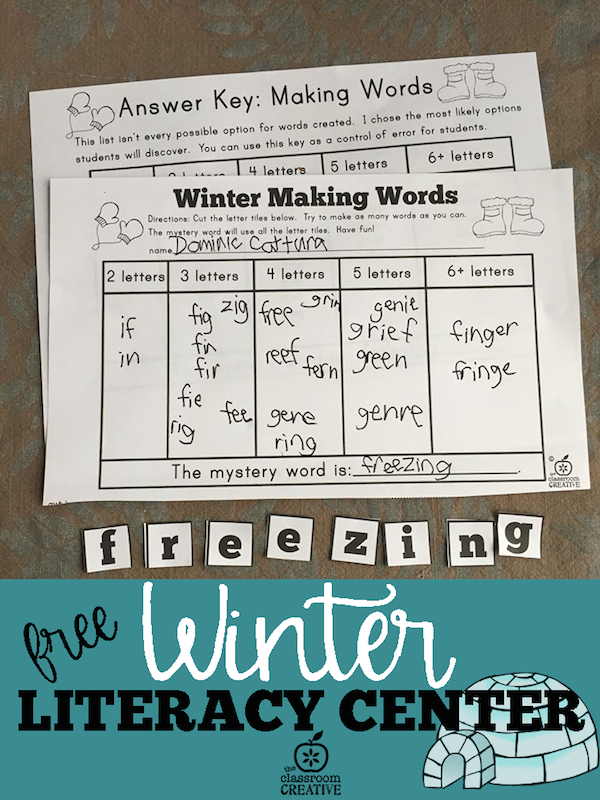 Answer Key: Making Words
This list isn't every possible option for words created. I chose the most likely options
students will discover. You can use this key as a control of error for students.
4 letters 5 letters 6+ letters
Winter Making Words
Directions: Cut the letter tiles below. Try to make as many words as you can.
The mystery word will use all the letter tiles. Have fun!
name Dominic Cattura
2 letters 3 letters 4 letters 5 letters 6+ letters
if
in
fig zig
fin
fir
fie
rig fee
free grin
reef fern
gene
ring
genie
grief
green
genre
finger
fringe
The mystery word is: freezing.
© the classroom CREATIVE
f r e e z i n g
free Winter
LITERACY CENTER
the
classroom
CREATIVE